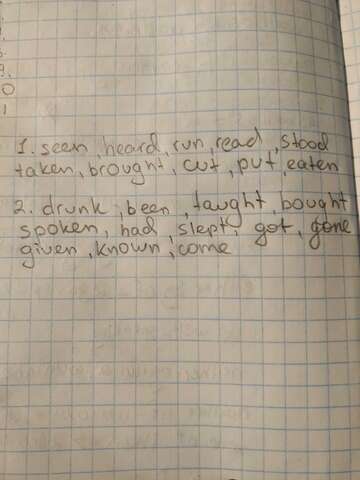 9.
0
1
1. seen, heard, run, read, stood
taken, brought, cut, put, eaten
2. drunk, been, taught, bought
spoken, had, slept, got, gone
given, known, come